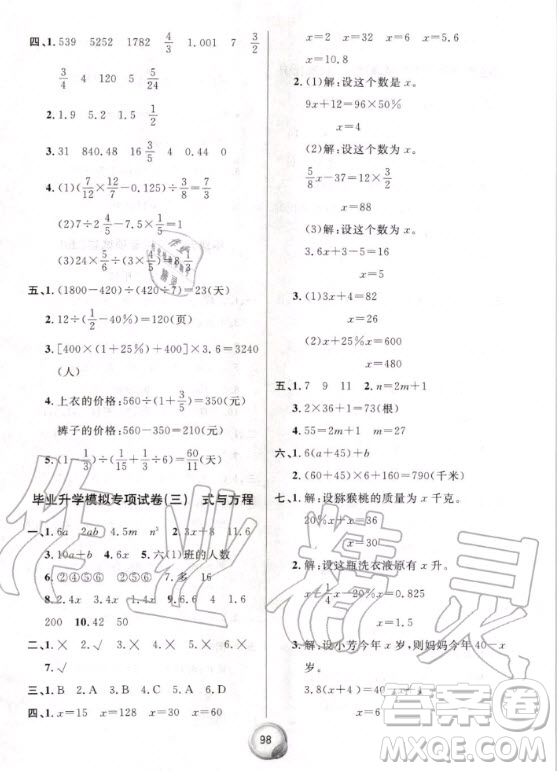 四、1. 539 5252 1782 4/3 1.001 7 3/2
3/4 120 5 5/24
2. 1.9 5.2 1.5 40
3. 31 840.48 16 3/5 4 210
4. (1)(7/12×12/7-0.125)÷3/8=7/3
(2)7÷2 4/5-7.5×1/5=1
(3)24×(3/4
五、1. (1800-420)÷(420÷7)=23(天)
2. 12÷(1/2-40%)=120(页)
3. [400×(1+25%)+400]×3.6=3240
(人)
4. 上衣的价格:560÷(1+3/5)=350(元)
裤子的价格:560-350=210(元)
5. 1÷(1/15+1/19
毕业升学模拟专项试卷(三) 式与方程
一、1. 6a ab 4.5m n³ 2. 3x+8 11.6
3. 10a+b 4. 6x 5. 六(1)班的人数
6. ②④⑤⑥ ②⑤ 7. 多
8. 2.4x 3.4x 1.4x 9. 4.6 1.6
200 10. 42 50
二、1. × 2. √ 3. × 4. × 5. × 6. ×
7. √
三、1. B 2. A 3. B 4. C 5. A
四、1. x=15 x=128 x=30 x=60
x=2 x=32 x=0.5 x=36
x=10.8
2. (1)解:设这个数是 x。
9x+12=96×50%
x=4
(2)解:设这个数为 x。
5/8x-37=12×3/2
x=88
(3)解:设这个数为 x。
3.6x+3=21
x=5
3. (1)3x+4=82
x=26
(2)
x=480
五、1. 7 9 11 2. n=2m+1
3. 2×36+1=73(根)
4. 55=2m+1 m=27
六、1. 6(a+45)+b
2. (60+45)×6+160=790(千米)
七、1. 解:设猕猴桃的质量为 x 千克。
20%x+x=36
x=30
2. 解:设这瓶洗衣液原有 x 升。
x=0.825
x=1.5
3. 解:设小芳今年 x 岁,则妈妈今年 40-x
岁。
x=6
98
作业精灵
答案圈
MXQE.COM